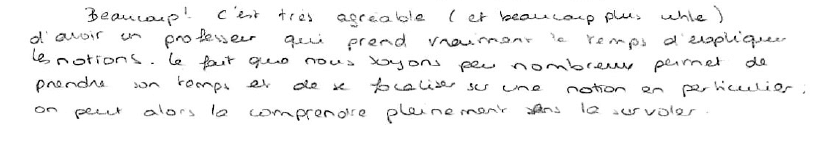 Beaucoup! C'est très agréable (et beaucoup plus utile)
d'avoir un professeur qui prend vraiment le temps d'expliquer
les notions. Le fait que nous soyons peu nombreux permet de
prendre son temps et de se focaliser sur une notion en particulier;
on peut alors la comprendre pleinement sans la survoler.